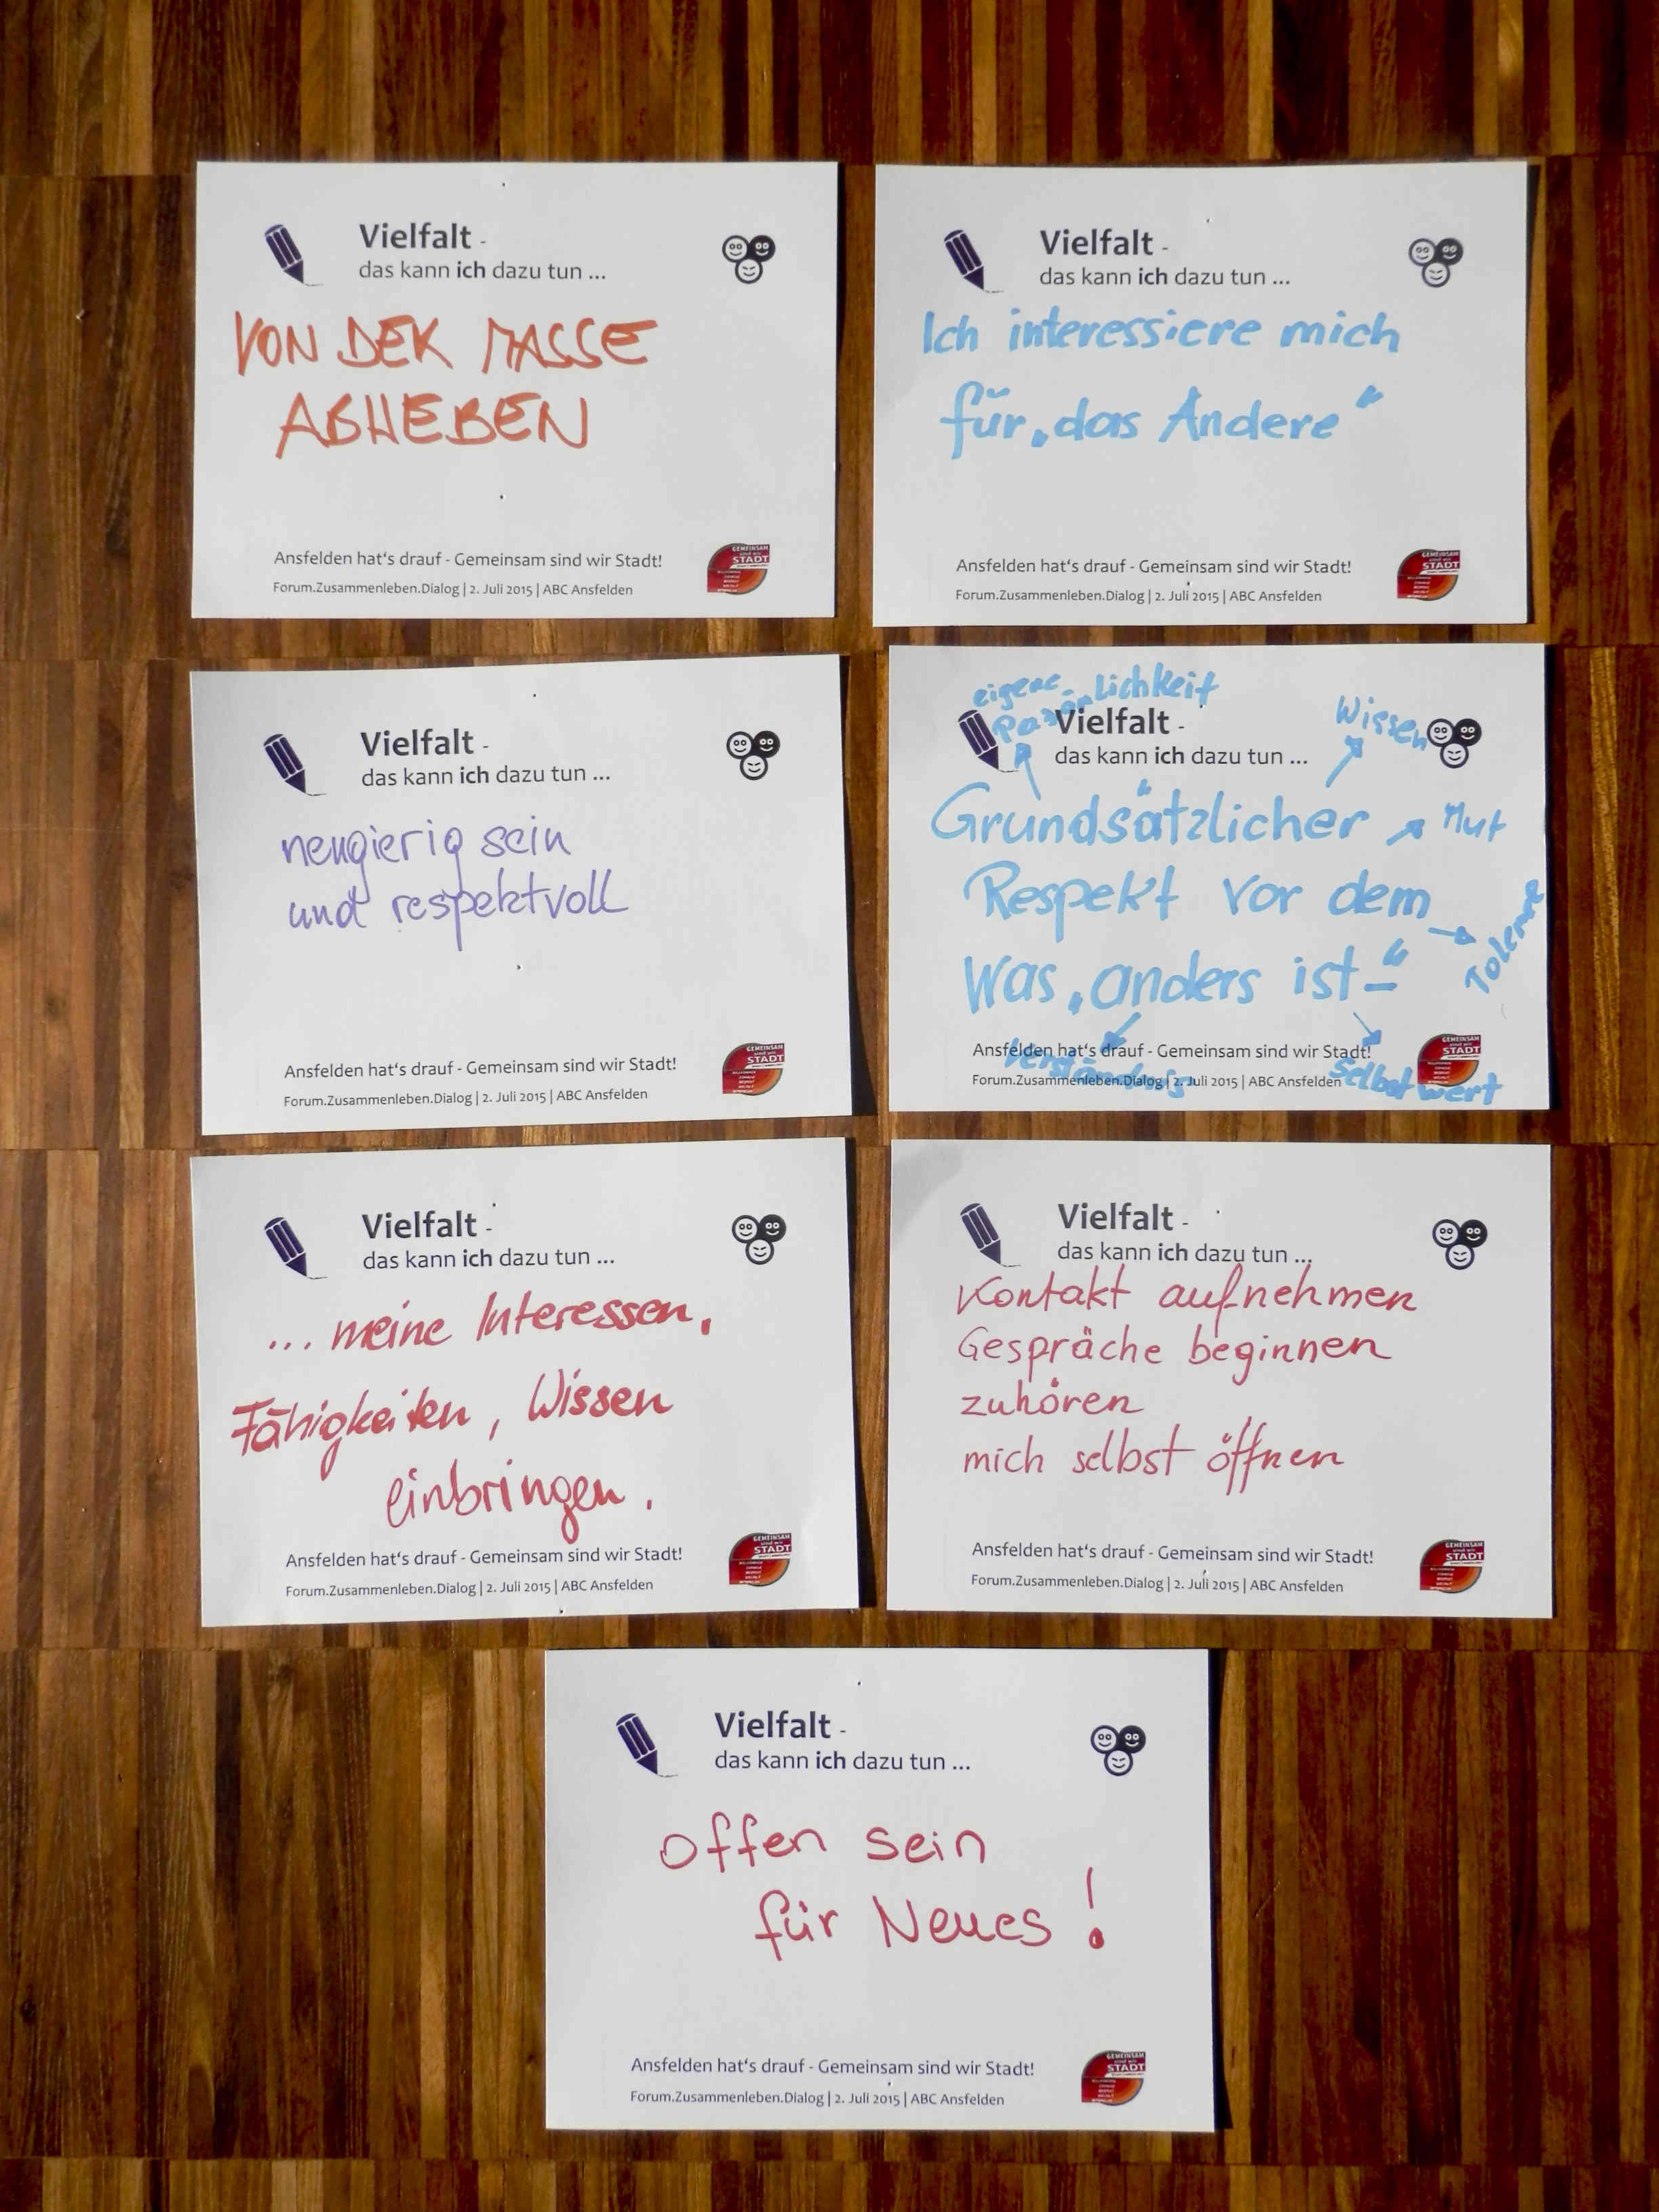 Vielfalt -
das kann ich dazu tun ...
VON DER MASSE
ABHEBEN
Ansfelden hat's drauf - Gemeinsam sind wir Stadt!
Forum.Zusammenleben.Dialog | 2. Juli 2015 | ABC Ansfelden
GEMEINSAM
sind wir
STADT
Vielfalt -
das kann ich dazu tun ...
Ich interessiere mich
für „das Andere“
Ansfelden hat's drauf - Gemeinsam sind wir Stadt!
Forum.Zusammenleben.Dialog | 2. Juli 2015 | ABC Ansfelden
GEMEINSAM
sind wir
STADT
Vielfalt -
das kann ich dazu tun ...
neugierig sein
und respektvoll
Ansfelden hat's drauf - Gemeinsam sind wir Stadt!
Forum.Zusammenleben.Dialog | 2. Juli 2015 | ABC Ansfelden
GEMEINSAM
sind wir
STADT
eigene
Persönlichkeit
Wissen
Vielfalt -
das kann ich dazu tun ...
Grundsätzlicher
Mut
Respekt vor dem
Toleranz
was „anders ist –“
Ansfelden hat's drauf - Gemeinsam sind wir Stadt!
Verständnis
Selbstwert
Forum.Zusammenleben.Dialog | 2. Juli 2015 | ABC Ansfelden
GEMEINSAM
sind wir
STADT
Vielfalt -
das kann ich dazu tun ...
... meine Interessen,
Fähigkeiten, Wissen
einbringen.
Ansfelden hat's drauf - Gemeinsam sind wir Stadt!
Forum.Zusammenleben.Dialog | 2. Juli 2015 | ABC Ansfelden
GEMEINSAM
sind wir
STADT
Vielfalt -
das kann ich dazu tun ...
Kontakt aufnehmen
Gespräche beginnen
zuhören
mich selbst öffnen
Ansfelden hat's drauf - Gemeinsam sind wir Stadt!
Forum.Zusammenleben.Dialog | 2. Juli 2015 | ABC Ansfelden
GEMEINSAM
sind wir
STADT
Vielfalt -
das kann ich dazu tun ...
Offen sein
für Neues !
Ansfelden hat's drauf - Gemeinsam sind wir Stadt!
Forum.Zusammenleben.Dialog | 2. Juli 2015 | ABC Ansfelden
GEMEINSAM
sind wir
STADT